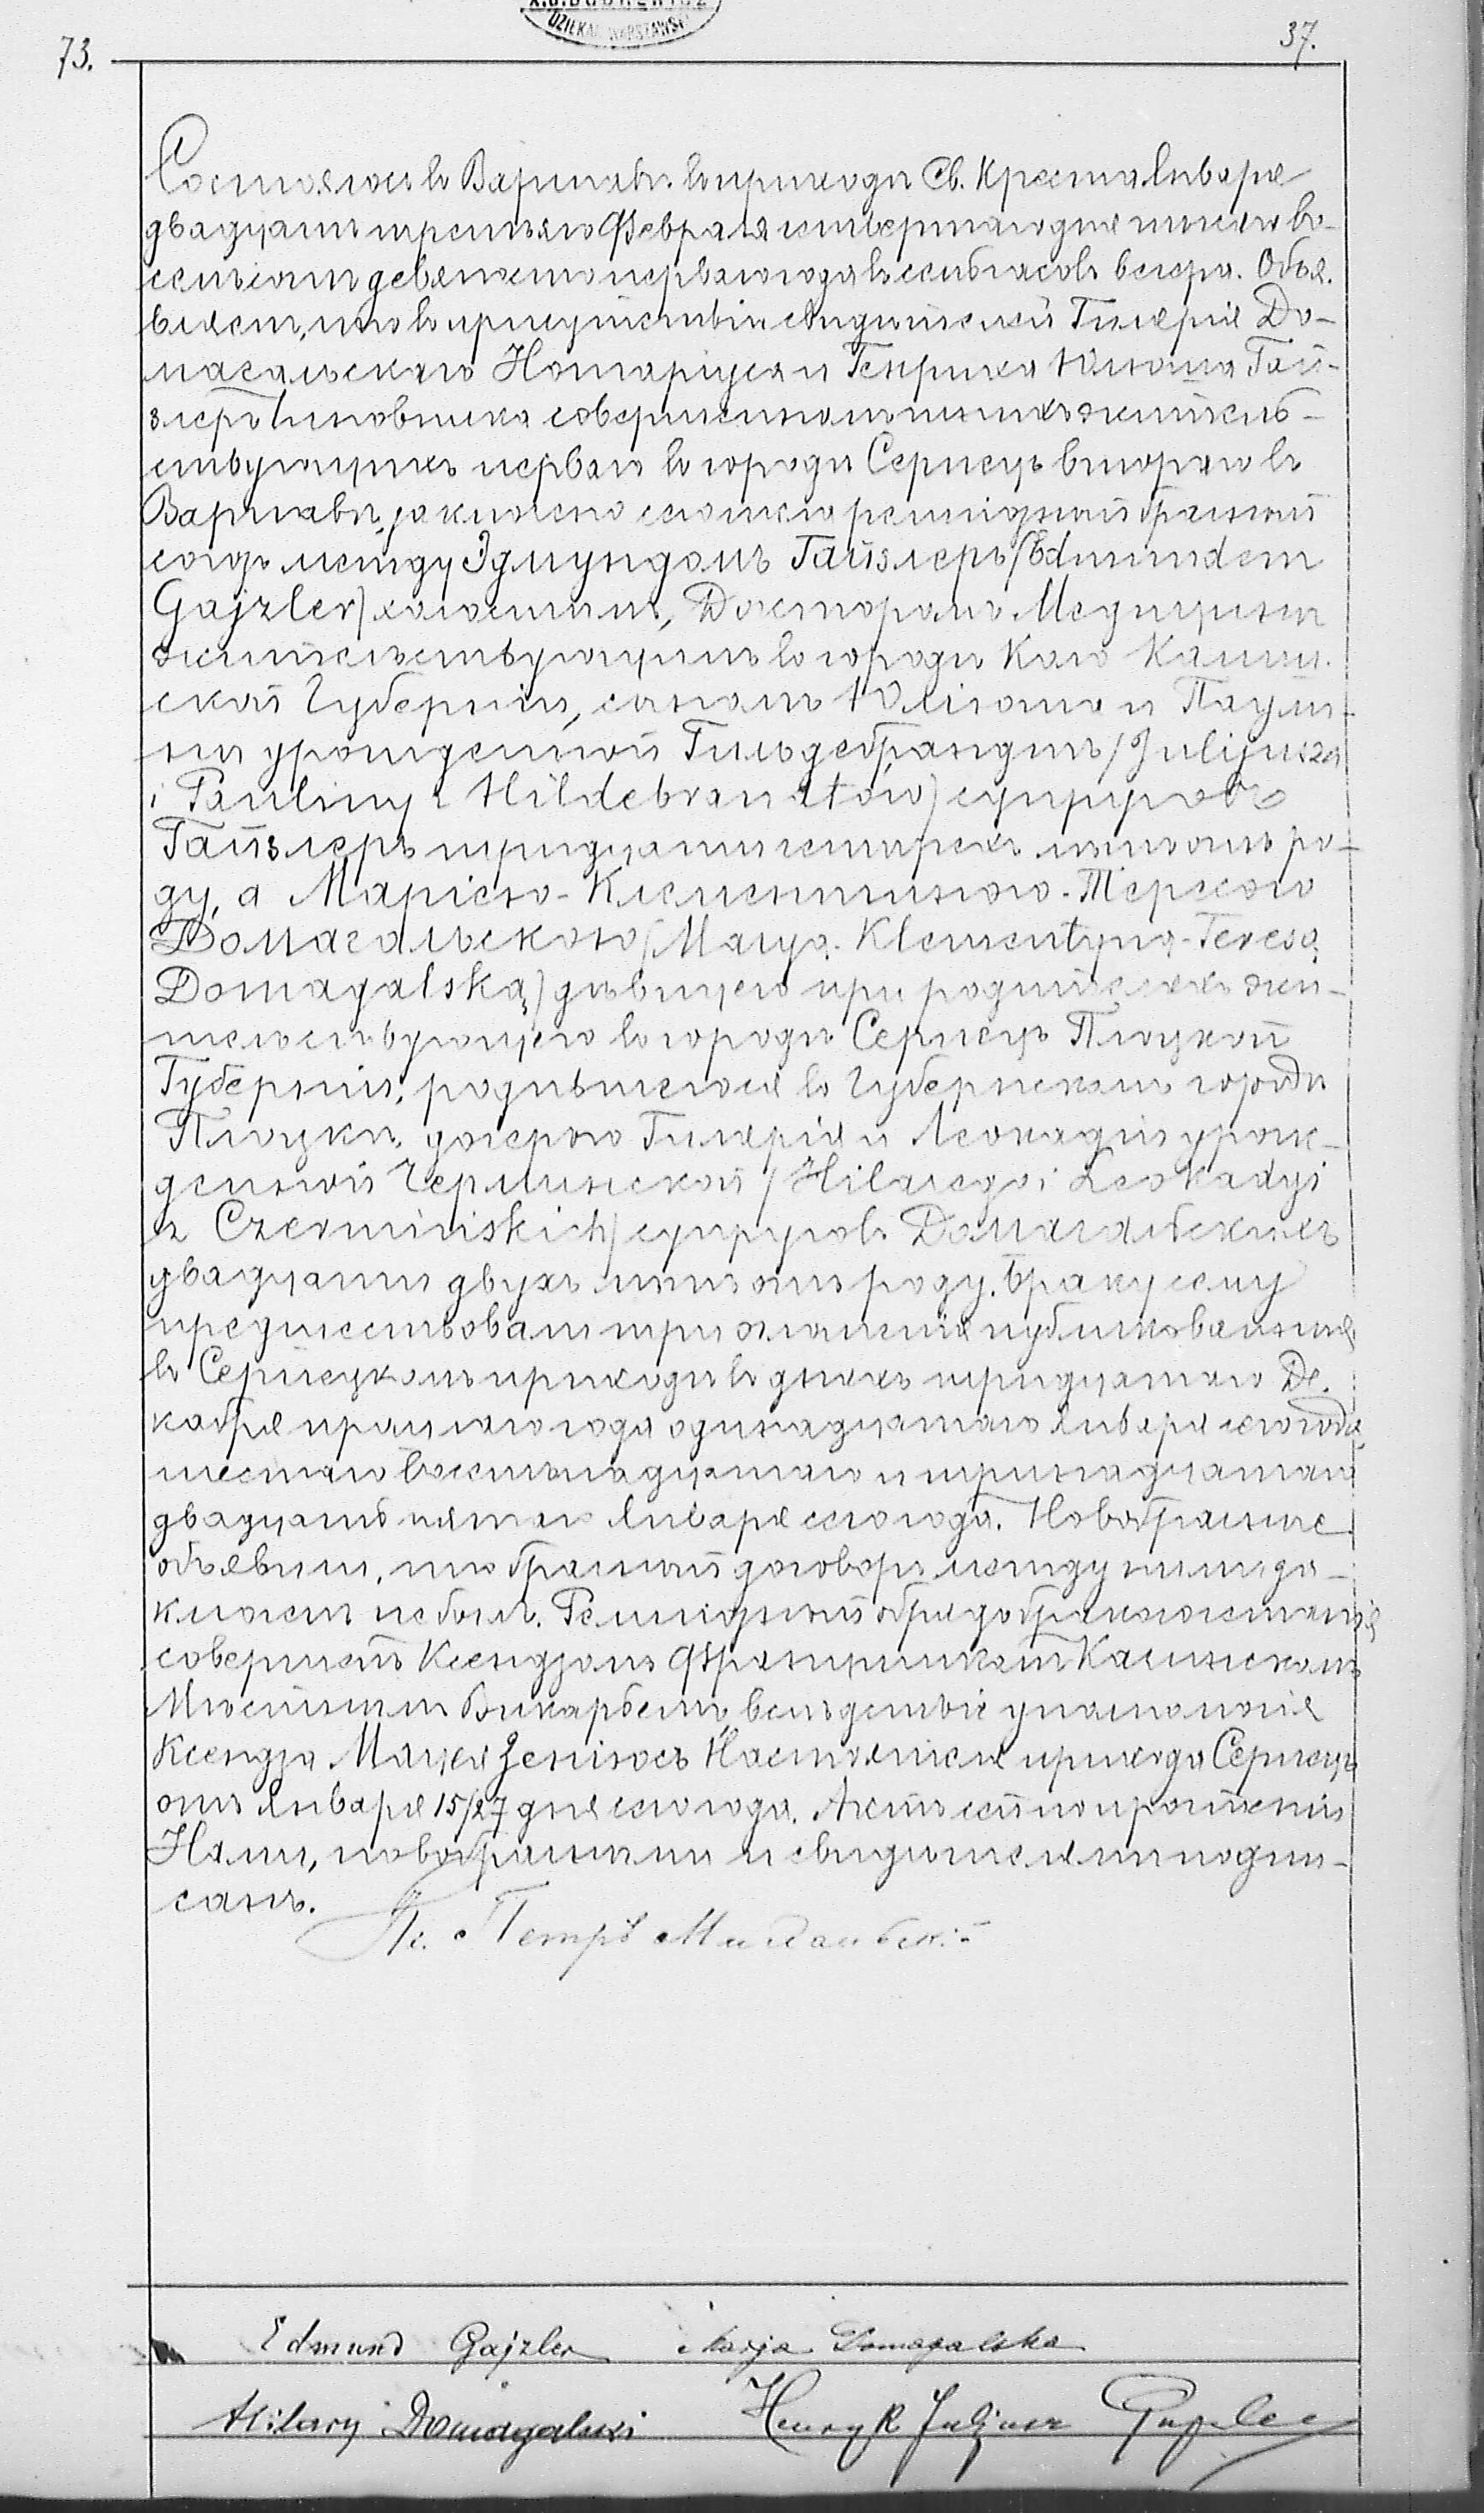 DZIEKAN WARSZAWSKI
73.
37.
Состоялось въ Варшавѣ въ приходѣ Св. Креста Января
двадцать третьяго Февраля четвертаго дня тысяча во-
семьсотъ девяносто перваго года въ семь часовъ вечера. Объя-
вляемъ, что въ присутствіи свидѣтелей Гилярія До-
магальскаго Нотаріуса и Генриха Юліоша Гай-
злеръ Чиновника совершеннолѣтнихъ жительс-
ствующихъ перваго въ городѣ Серпецъ втораго въ
Варшавѣ, заключено сего числа религіозный брачный
союзъ между Эдмундомъ Гайзлеръ /Edmundem
Gajzler/ холостымъ, Докторомъ Медицины
жительствующимъ въ городѣ Коло Калиш-
ской Губерніи, сыномъ Юліоша и Паули-
ны урожденной Гильдебрандтъ /Juliusza
i Pauliny z Hildebrandtów/ супруговъ
Гайзлеръ тридцати четырехъ лѣтъ отъ ро-
ду, а Маріею-Клементиною-Терезою
Домагальскою /Maryą-Klementyną-Teresą
Domagalską/ дѣвицею при родителяхъ жи-
тельствующею въ городѣ Серпецъ Плоцкой
Губерніи, родившеюся въ Губернскомъ городѣ
Плоцкѣ, дочерью Гилярія и Леокадіи урож-
денной Черминской /Hilarego i Leokadyi
z Czermińskich/ супруговъ Домагальскихъ
двадцати двухъ лѣтъ отъ роду. Браку сему
предшествовали три оглашенія публикованныя
въ Серпецкомъ приходѣ въ дняхъ тридцатаго Де-
кабря прошлаго года одинадцатаго Января сего года,
шестаго восемьнадцатаго и тринадцатаго
двадцать пятаго Января сего года. Новобрачные
объявили, что брачный договоръ между ними за-
ключенъ не былъ. Религіозный обрядъ бракосочетанія
совершенъ Ксендзомъ Францишкомъ Калинскимъ
Мѣстнымъ Викарнымъ, вслѣдствіе уполномочія
Ксендза Мацея Настоятеля прихода Серпецъ
отъ Января 15/27 дня сего года. Актъ сей по прочтеніи
Нами, новобрачными и свидѣтелями подпи-
санъ.
Петръ
Edmund Gajzler Marja Domagalska
Hilary Domagalski Henryk Juljusz Gajzler